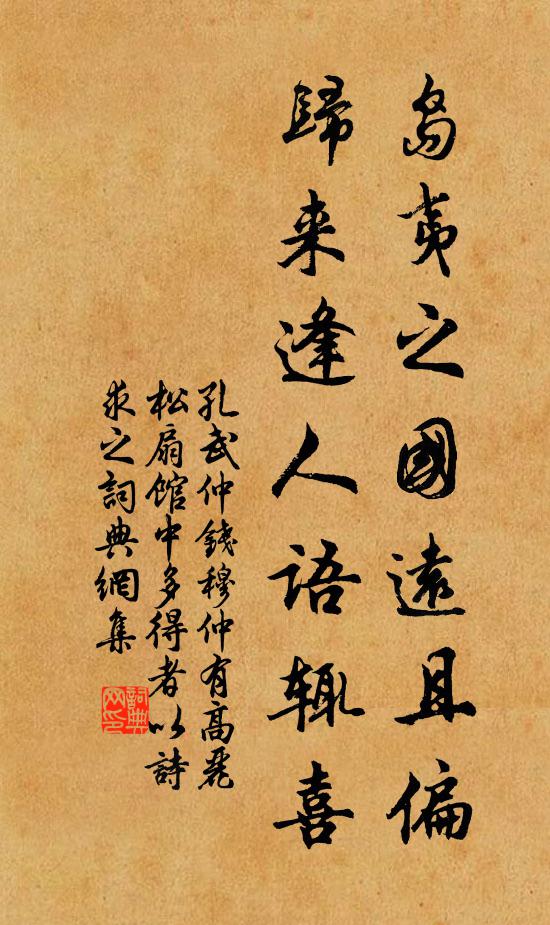 島夷之國遠且偏
歸来逢人語辄喜
孔武仲錢穆仲有高麗
松扇馆中多得者以詩
求之詞典網集
詞典网印